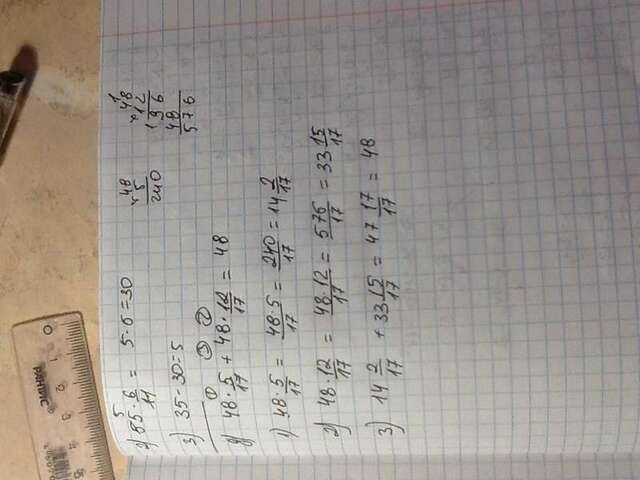 РАНИС
0 1 2
5
2) 85 · 6/11 = 5·6=30
48
× 5
240
1
48
× 12
1 96
48
576
3) 35-30=5
① ③ ②
g) 48 · 5/17 + 48 · 12/17 = 48
1) 48 · 5/17 = 48·5/17 = 240/17 = 14 2/17
2) 48 · 12/17 = 48·12/17 = 576/17 = 33 15/17
3) 14 2/17 + 33 15/17 = 47 17/17 = 48